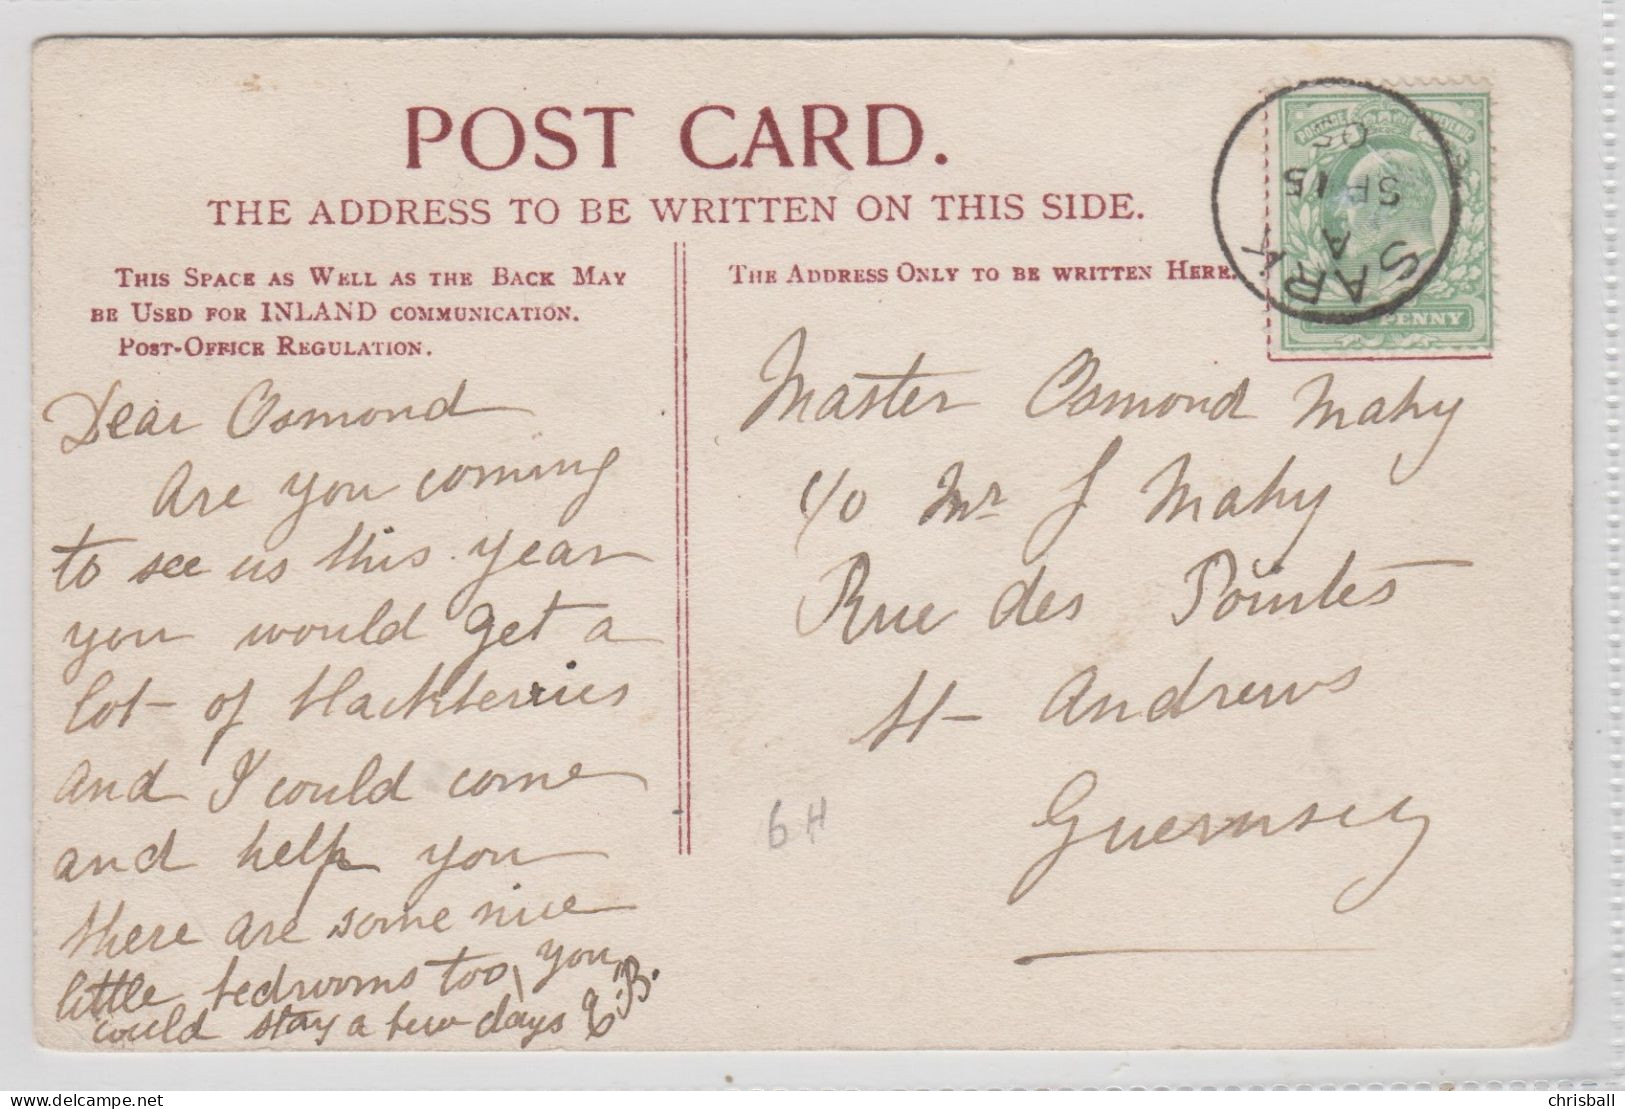 POST CARD.
THE ADDRESS TO BE WRITTEN ON THIS SIDE.
THIS SPACE AS WELL AS THE BACK MAY
BE USED FOR INLAND COMMUNICATION.
POST-OFFICE REGULATION.
THE ADDRESS ONLY TO BE WRITTEN HERE.
POSTAGE REVENUE
PENNY
SARK
A
SP 15
05
Dear Osmond
Are you coming
to see us this year
you would get a
lot of blackberries
and I could come
and help you
there are some nice
little bedrooms too, you
could stay a few days E.B.
Master Osmond Mahy
c/o Mr J Mahy
Rue des Pointes
St Andrews
Guernsey
6H
chrisball